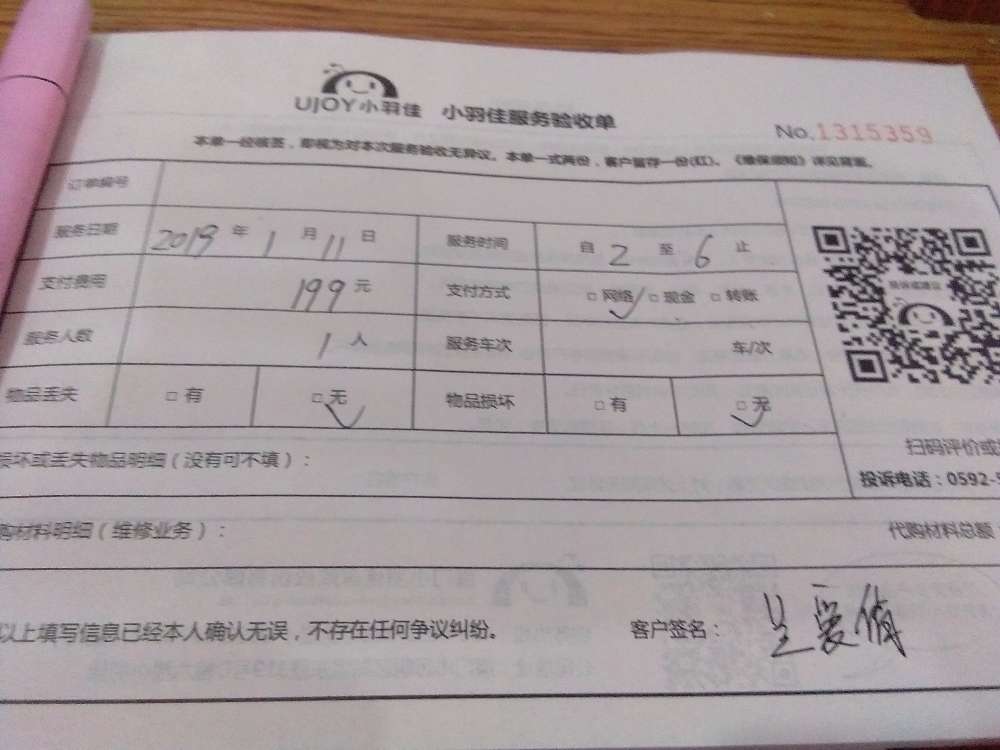 UJOY小羽佳 小羽佳服务验收单
No.1315359
本单一经核签，即视为对本次服务验收无异议。本单一式两份，客户留存一份(红)。《维保须知》详见背面。
订单编号
服务日期 2019 年 1 月 11 日 服务时间 自 2 至 6 止
支付费用 199 元 支付方式 □ 网络 □ 现金 □ 转账
服务人数 1 人 服务车次 车/次
物品丢失 □ 有 □ 无 物品损坏 □ 有 □ 无
扫码评价或
投诉电话：0592-
损坏或丢失物品明细（没有可不填）：
购材料明细（维修业务）： 代购材料总额
以上填写信息已经本人确认无误，不存在任何争议纠纷。 客户签名：